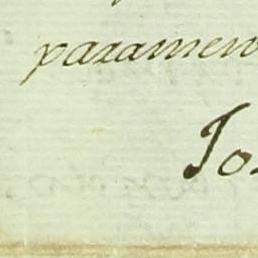 paramen
Jo